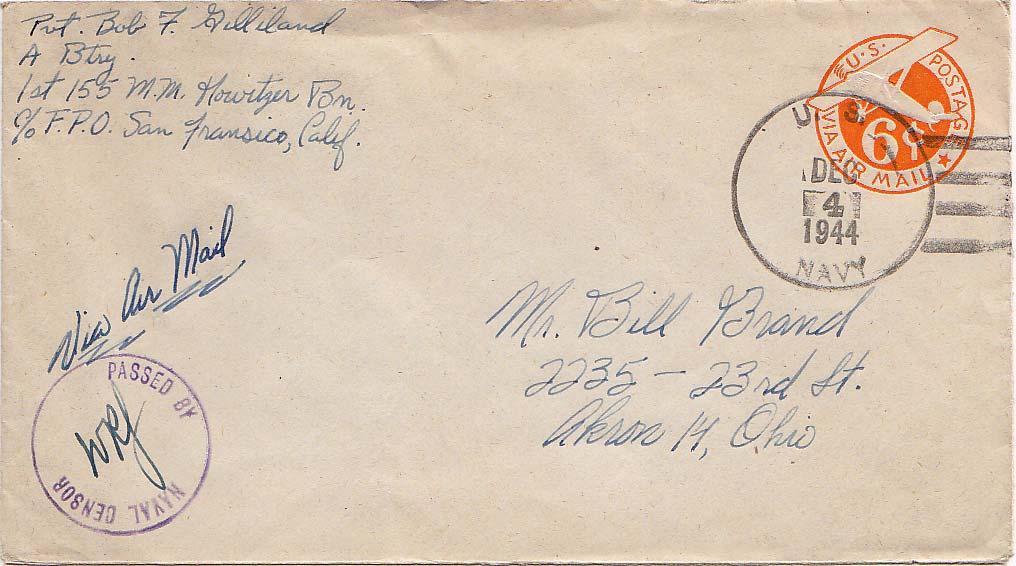 Pvt. Bob F. Gilliland
A Btry.
1st 155 M.M. Howitzer Bn.
c/o F.P.O. San Fransico, Calif.
U.S. POSTAGE
VIA AIR MAIL
6¢
U. S.
DEC
4
1944
NAVY
Via Air Mail
Mr. Bill Brand
2235 - 23rd St.
Akron 14, Ohio
PASSED BY
NAVAL CENSOR